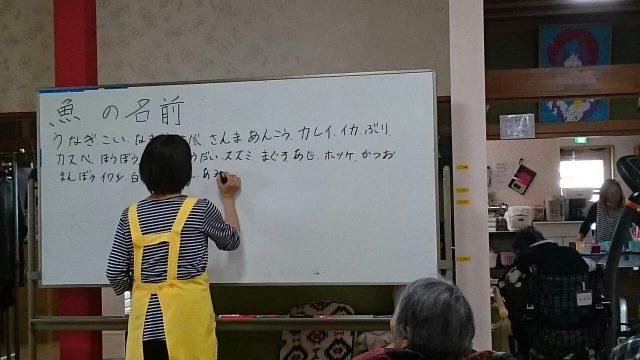 魚 の 名前
うなぎ こい、な さんま あんこう、カレイ、イカ、ぶり
カスベ、ほうぼう だい、スズミ まぐろ あじ、ホッケ、かつお
まんぼう イワシ 白